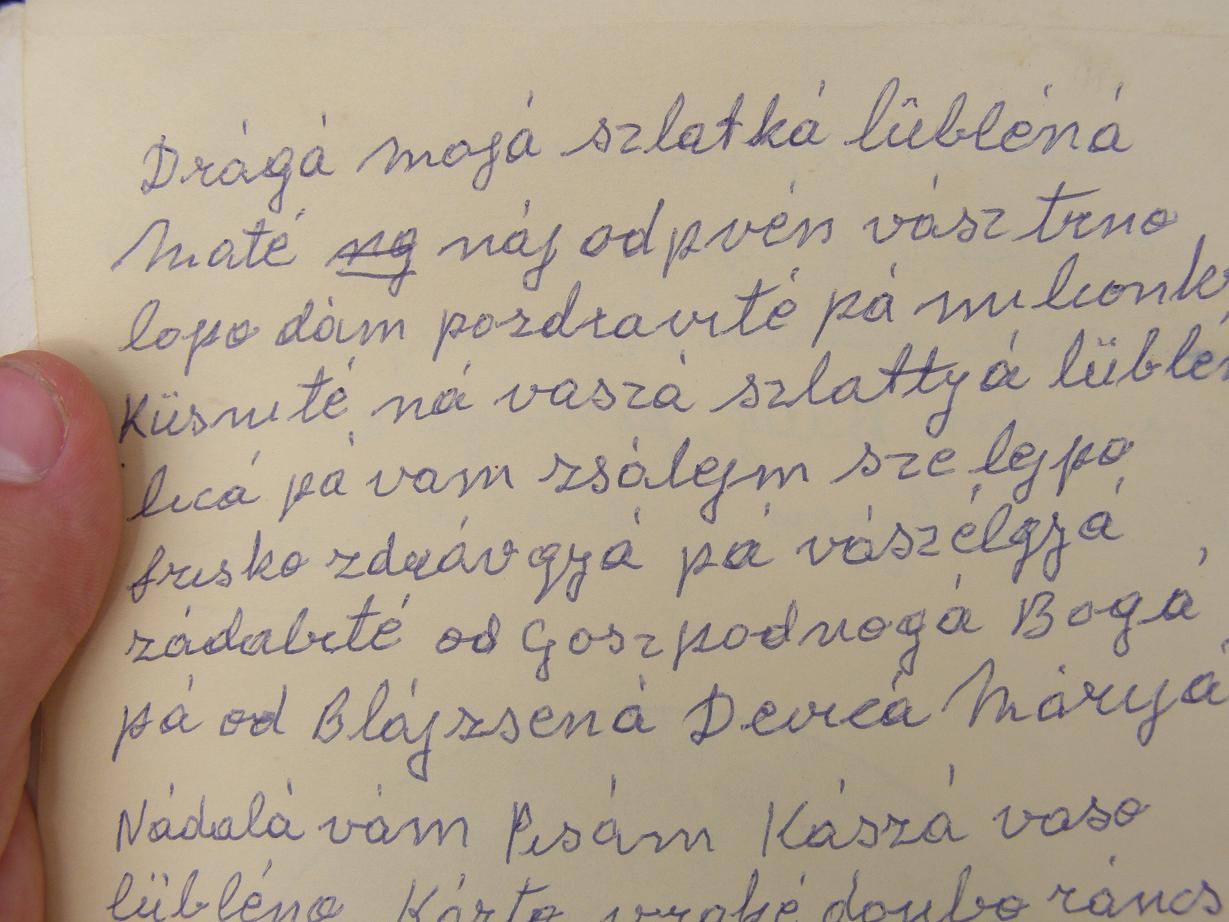 Drágá mojá szlatká lübléná
Máté ng náj od pvén vász trno
lopo dám pozdravité pá milionkr
Küsnité ná vaszá szlattyá lüblén
licá pá vam zsálejm sze lejpo
frisko zdrávgyá pá vászélgyá
zádabité od Goszpodnogá Bogá,
pá od Blájzsená Devicá Máriyá
Nádalá vám Pisám Kászá vaso
lübléno Kárto vraké doubo ráncs